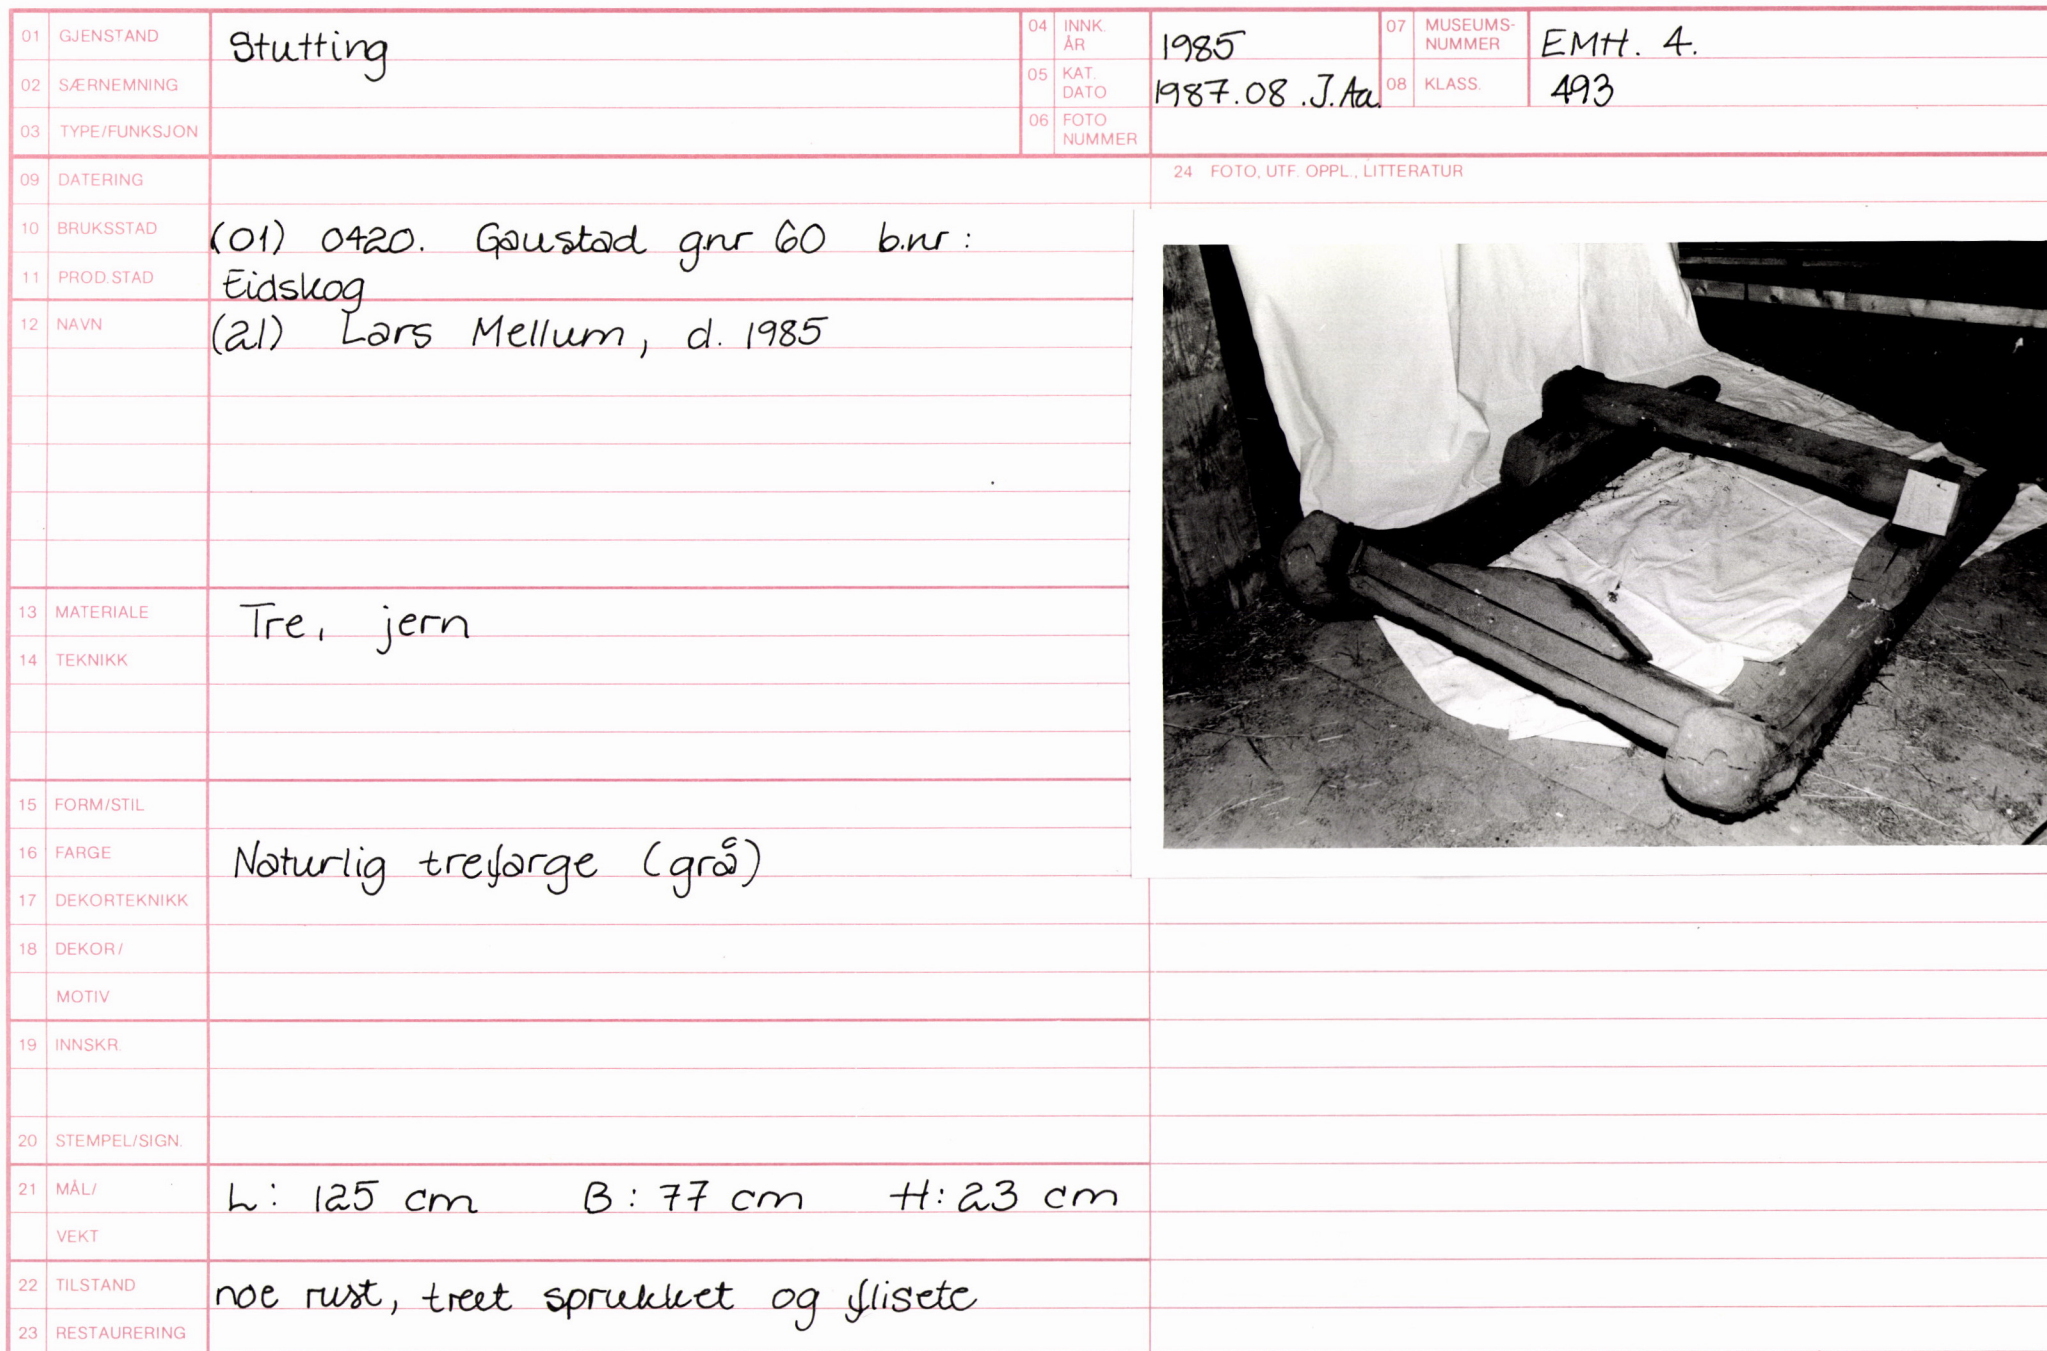 01 GJENSTAND Stutting
02 SÆRNEMNING
03 TYPE/FUNKSJON
04 INNK. ÅR 1985
05 KAT. DATO 1987.08.J.Aa.
06 FOTO NUMMER
07 MUSEUMS-NUMMER EMH. 4.
08 KLASS. 493
09 DATERING
24 FOTO, UTF. OPPL., LITTERATUR
10 BRUKSSTAD (01) 0420. Gaustad gnr 60 b.nr:
11 PROD.STAD Eidskog
12 NAVN (21) Lars Mellum, d. 1985
13 MATERIALE Tre, jern
14 TEKNIKK
15 FORM/STIL
16 FARGE Naturlig trefarge (grå)
17 DEKORTEKNIKK
18 DEKOR/
MOTIV
19 INNSKR.
20 STEMPEL/SIGN.
21 MÅL/ L: 125 cm B: 77 cm H: 23 cm
VEKT
22 TILSTAND noe rust, treet sprukket og flisete
23 RESTAURERING